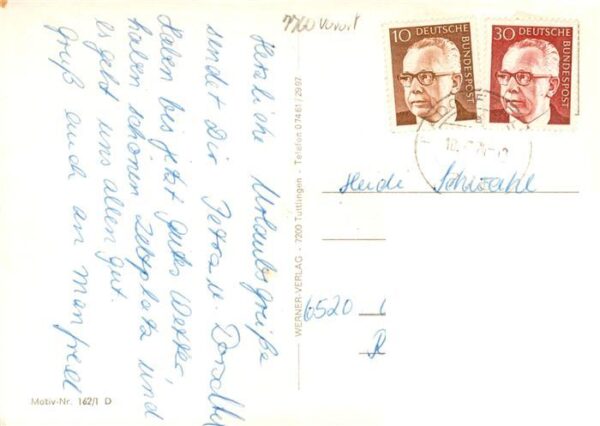 Herzliche Urlaubsgrüße
sendet Dir Petra u.
Haben bis jetzt gutes Wetter,
haben schönen Zeltplatz und
es geht uns allen gut.
Gruß auch an Manfred
WERNER-VERLAG - 7200 Tuttlingen - Telefon 07461/2997
Motiv-Nr. 162/1 D
10 DEUTSCHE BUNDESPOST
30 DEUTSCHE BUNDESPOST
Heidi
6520